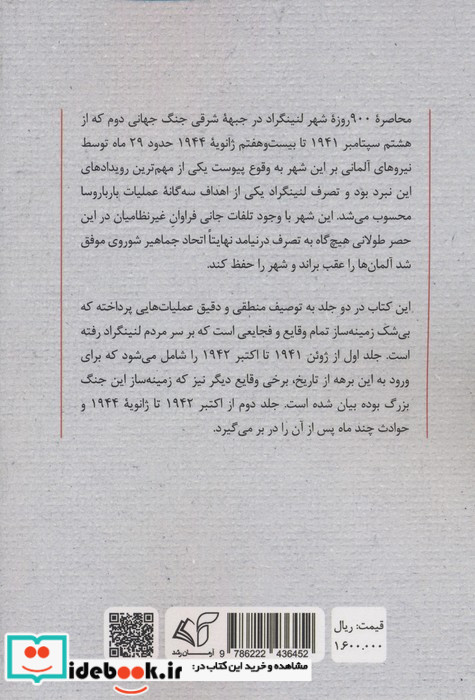 محاصرهٔ ۹۰۰روزهٔ شهر لنینگراد در جبههٔ شرقی جنگ جهانی دوم که از
هشتم سپتامبر ۱۹۴۱ تا بیست‌وهفتم ژانویهٔ ۱۹۴۴ حدود ۲۹ ماه توسط
نیروهای آلمانی بر این شهر به وقوع پیوست یکی از مهم‌ترین رویدادهای
این نبرد بود و تصرف لنینگراد یکی از اهداف سه‌گانهٔ عملیات بارباروسا
محسوب می‌شد. این شهر با وجود تلفات جانی فراوانِ غیرنظامیان در این
حصر طولانی هیچ‌گاه به تصرف درنیامد نهایتاً اتحاد جماهیر شوروی موفق
شد آلمان‌ها را عقب براند و شهر را حفظ کند.
این کتاب در دو جلد به توصیف منطقی و دقیق عملیات‌هایی پرداخته که
بی‌شک زمینه‌ساز تمام وقایع و فجایعی است که بر سر مردم لنینگراد رفته
است. جلد اول از ژوئن ۱۹۴۱ تا اکتبر ۱۹۴۲ را شامل می‌شود که برای
ورود به این برهه از تاریخ، برخی وقایع دیگر نیز که زمینه‌ساز این جنگ
بزرگ بوده بیان شده است. جلد دوم از اکتبر ۱۹۴۲ تا ژانویهٔ ۱۹۴۴ و
حوادث چند ماه پس از آن را در بر می‌گیرد.
قیمت: ریال
۱.۶۰۰.۰۰۰
آرمان رشد
9 786222 436452
مشاهده و خرید این کتاب در:
idebook.ir